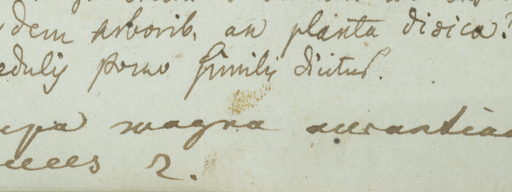 dem arborib, an planta dioica?
edulis pomo similis dicitur.
upa magna aurantiac
uces 2.